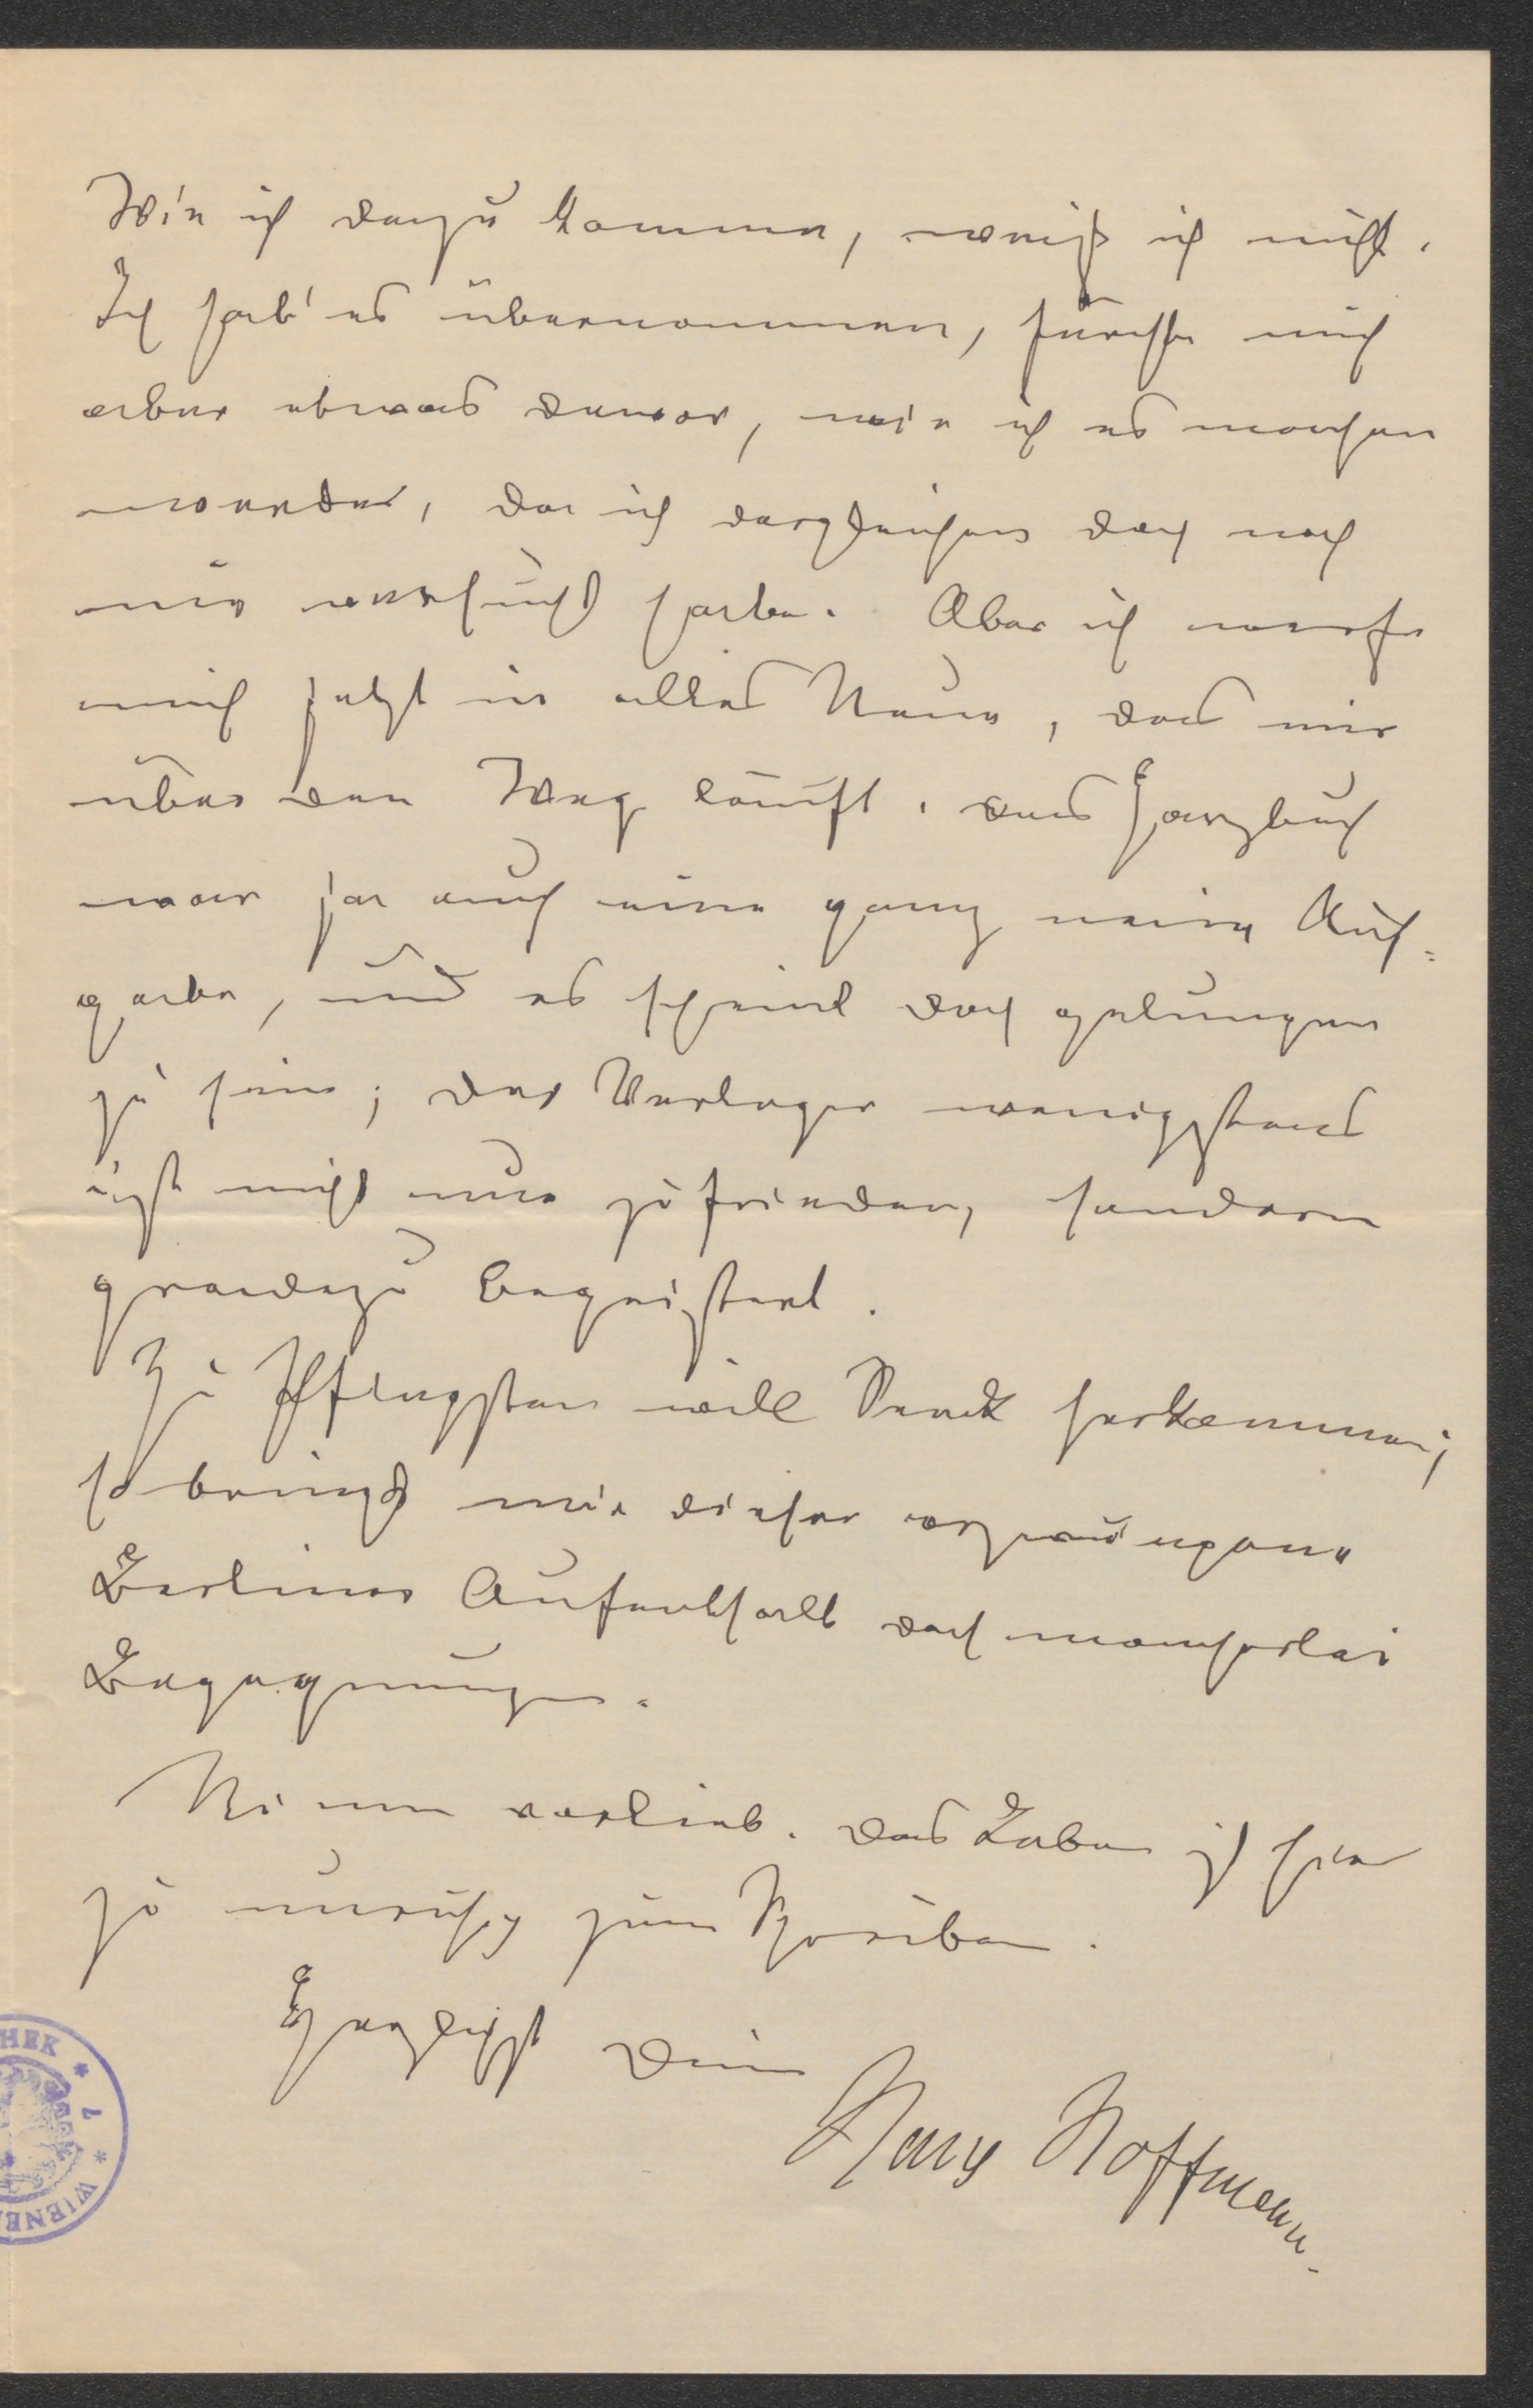 Wie ich dazu komme, weiß ich nicht.
Ich hab' es übernommen, fürchte mich
aber etwas davor, wie ich es machen
werde, da ich dergleichen doch noch
nie versucht habe. Aber ich werfe
mich jetzt in alles Neue, das mir
über den Weg läuft. Das Harzbuch
war ja auch eine ganz neue Auf-
gabe, und es scheint doch gelungen
zu sein; der Verleger wenigstens
ist nicht nur zufrieden, sondern
gradezu begeistert.
Zu Pfingsten will herkommen;
so bringt mir dieser erzwungene
Berliner Aufenthalt doch mancherlei
Begegnungen.
Nimm vorlieb. Das Leben ist hier
zu unruhig zum Schreiben.
Herzlichst Dein
Hans Hoffmann.
HEK * 7 * WIENE